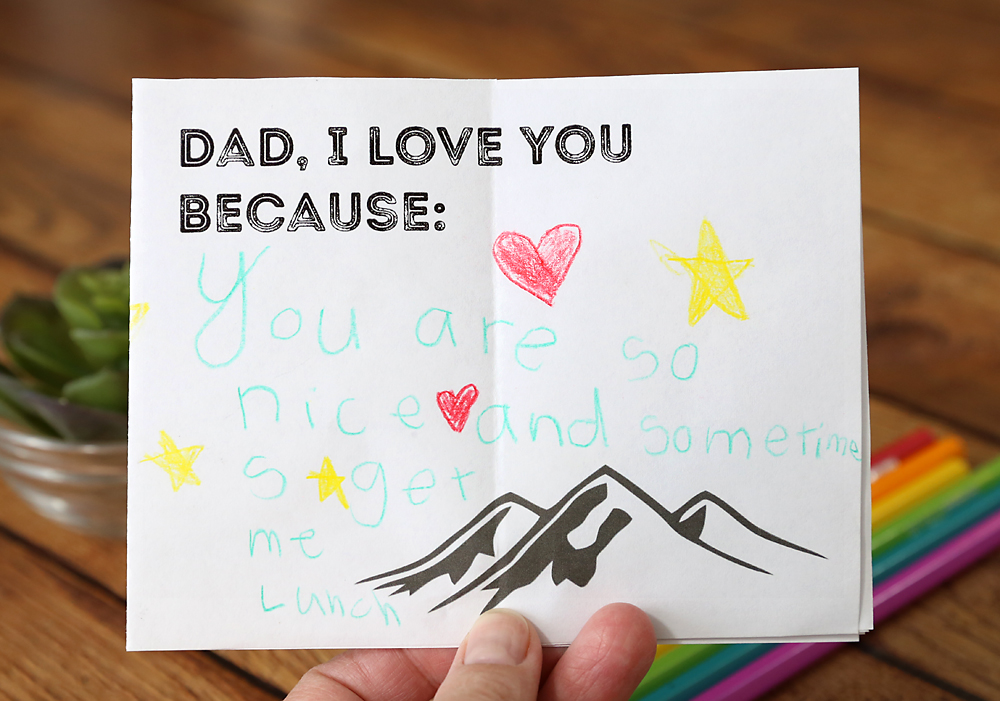 DAD, I LOVE YOU
BECAUSE:
You are so
nice and sometime
s get
me
Lunch